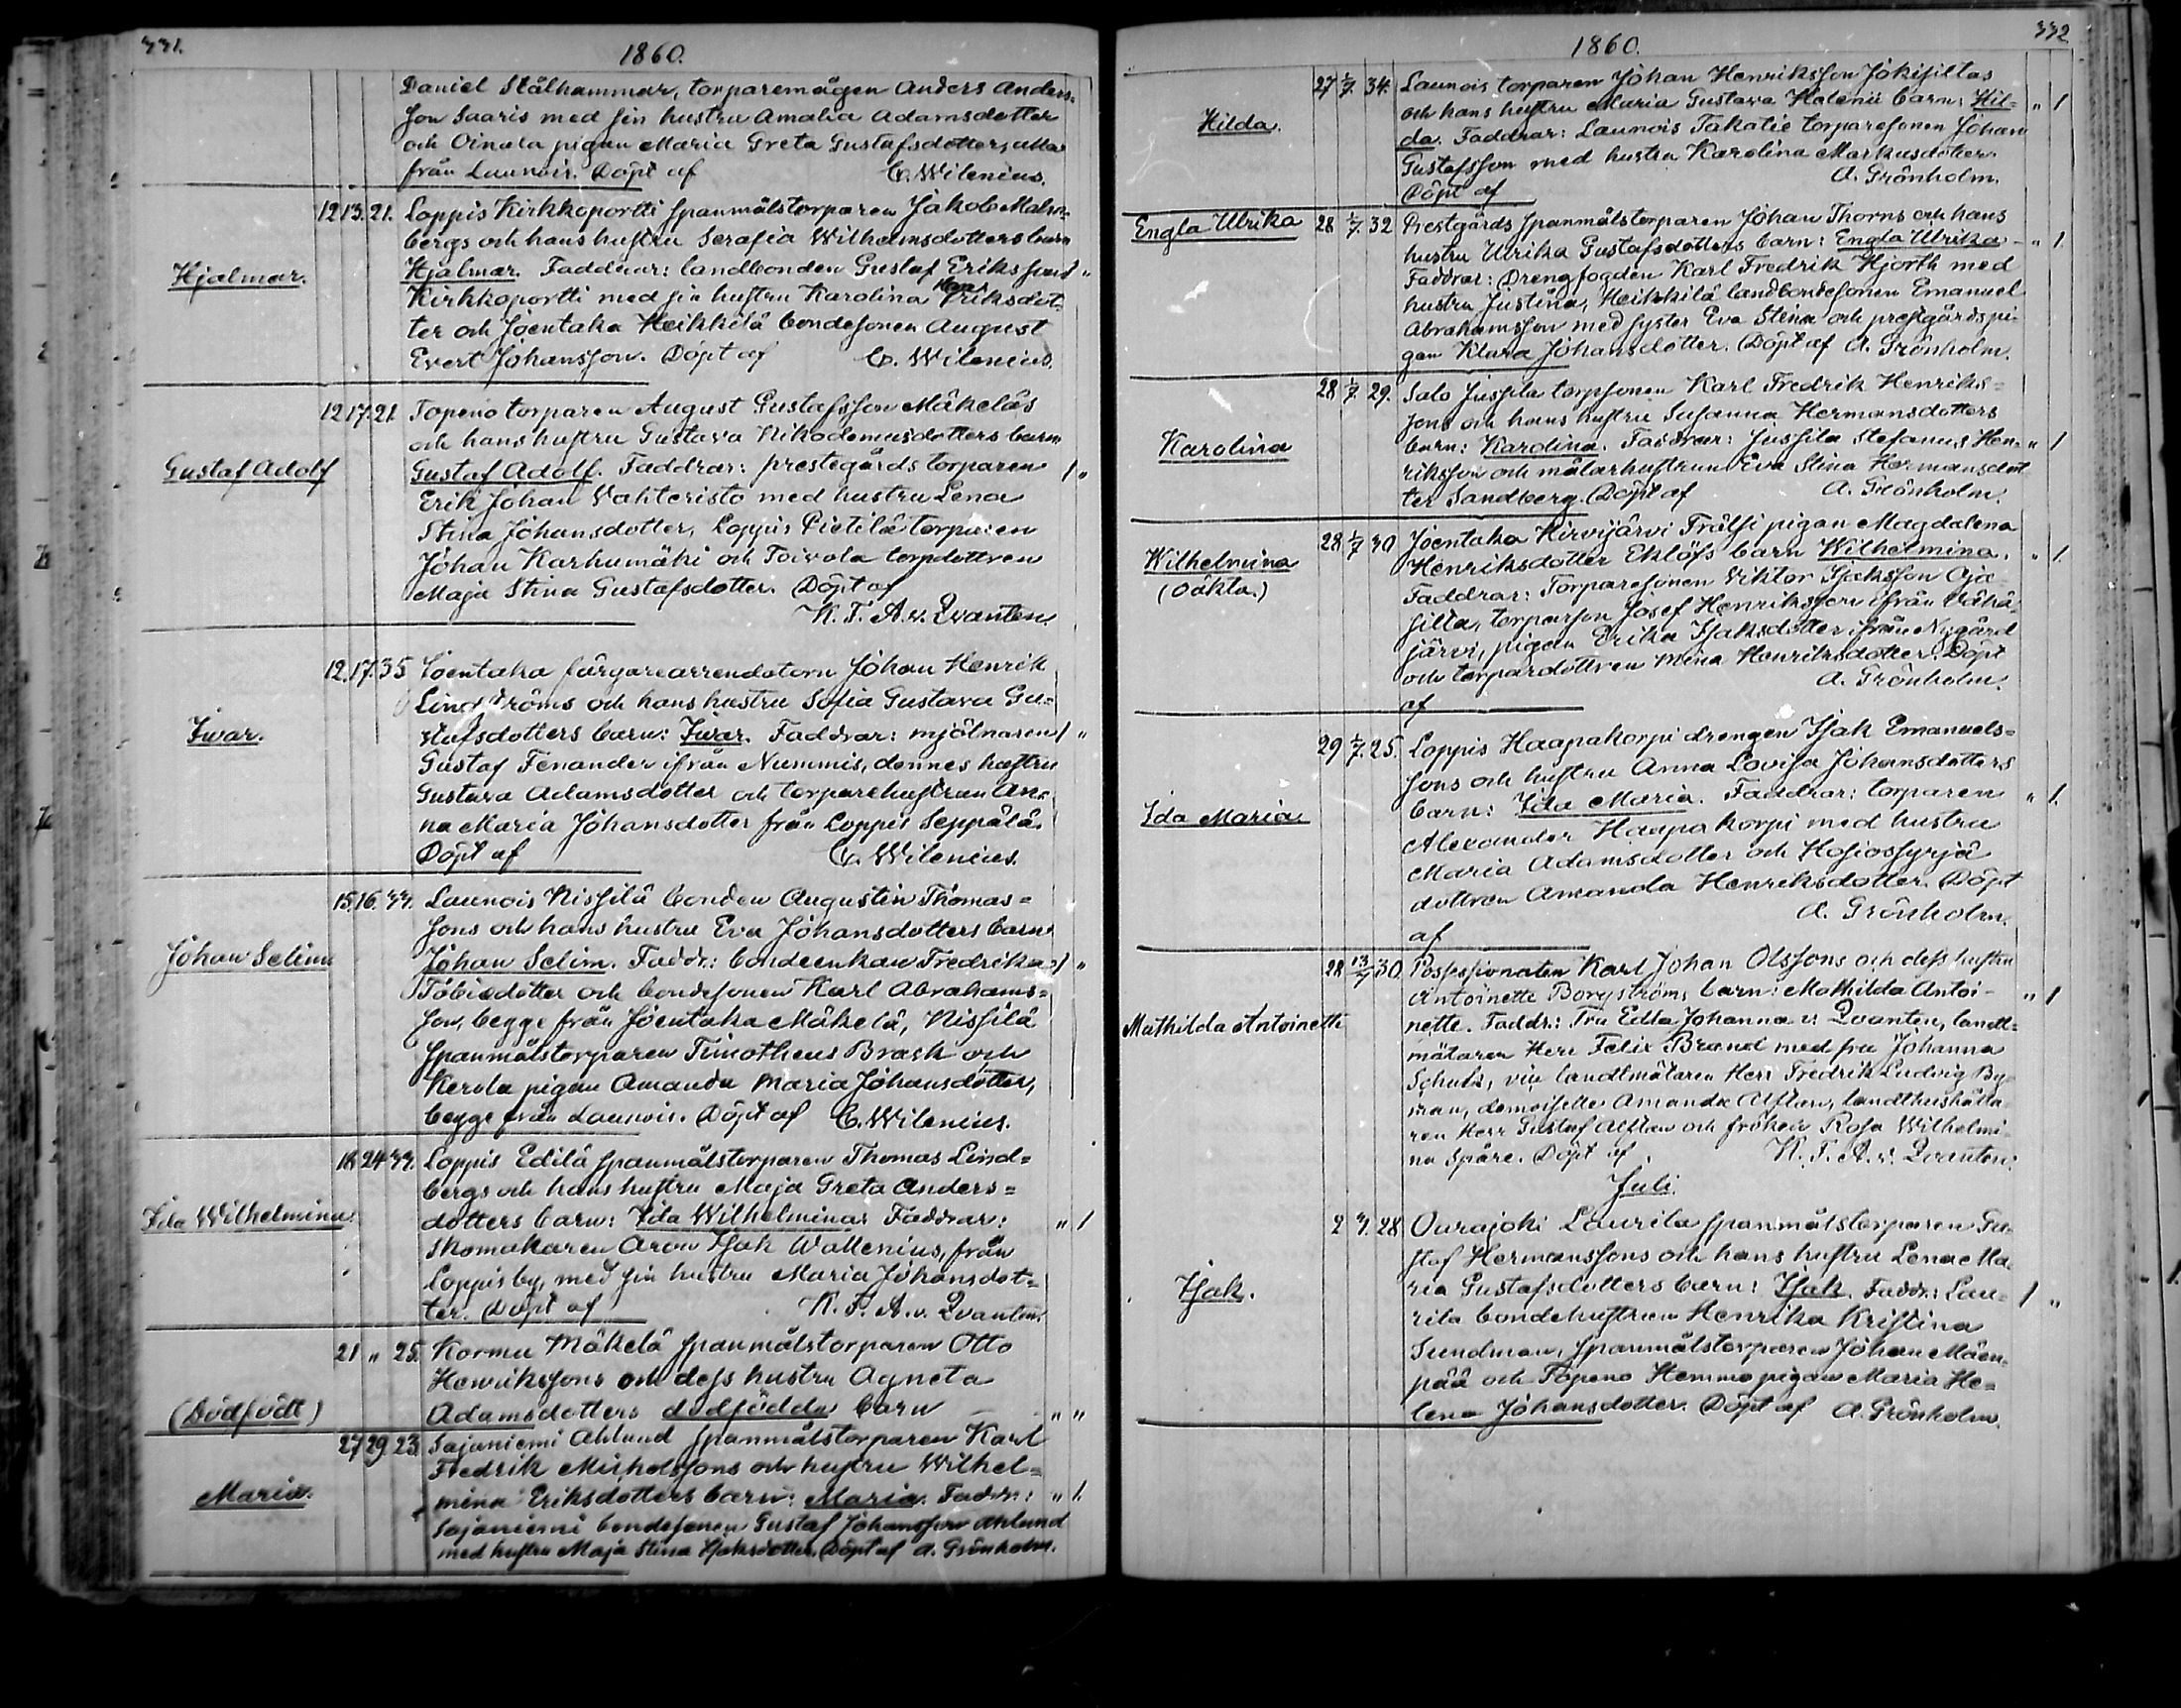 331.
1860.
Daniel Stålhammar, torparemågen Anders Anders-
son Saaris med sin hustru Amalia Adamsdotter
och Oinala pigan Maria Greta Gustafsdotter, alla
från Launois. Döpt af C. Wilenius.
Hjalmar.
12 13. 21. Loppis Kirkkoportti spanmålstorparen Jakob Malm-
bergs och hans hustru Serafia Wilhelmsdotters barn
Hjalmar. Faddrar: landbonden Gustaf Eriksson 1 "
Kirkkoportti med sin hustru Karolina Eriksdot-
ter och Joentaka Heikkilä bondesonen August
Evert Johansson. Döpt af C. Wilenius.
Gustaf Adolf
12 17. 21. Topeno torparen August Gustafsson Mäkeläs
och hans hustru Gustava Nikodemusdotters barn
Gustaf Adolf. Faddrar: prestegårds torparen 1 "
Erik Johan Vahteristo med hustru Lena
Stina Johansdotter, Loppis Pietilä torparen
Johan Karhumäki och Toivola torpdottren
Maja Stina Gustafsdotter. Döpt af
K. F. A. v. Qvanten.
Iwar.
12. 17. 35 Joentaka färgarearrendatorn Johan Henrik
Lindströms och hans hustru Sofia Gustava Gu-
stafsdotters barn: Iwar. Faddrar: mjölnaren 1 "
Gustaf Fenander ifrån Nummis, dennes hustru
Gustava Adamsdotter och torparehustrun An-
na Maria Johansdotter från Loppis Seppälä.
Döpt af C. Wilenius.
Johan Selim
15. 16. 33. Launois Nissilä bonden Augustin Thomas-
sons och hans hustru Eva Johansdotters barn
Johan Selim. Faddr.: bondeenkan Fredrika 1 "
Tobiedotter och bondesonen Karl Abrahams-
son, begge från Joentaka Mäkelä, Nissilä
spanmålstorparen Timotheus Brask och
Kerola pigan Amanda Maria Johansdotter,
begge från Launois. Döpt af C. Wilenius.
Ida Wilhelmina.
18 24 33. Loppis Edilä spanmålstorparen Thomas Lind-
bergs och hans hustru Maja Greta Anders-
dotters barn: Ida Wilhelmina. Faddrar: " 1
Skomakaren Aron Isak Wallenius, från
Loppis by, med sin hustru Maria Johansdot-
ter. Döpt af K. F. A. v. Qvanten.
(Dödfödt)
21 " 25. Kormu Mäkelä spanmålstorparen Otto
Henrikssons och dess hustru Agneta
Adamsdotters dödfödda barn " "
Maria.
27 29 23. Sajaniemi Ahlund spanmålstorparen Karl
Fredrik Mickelssons och hustru Wilhel-
mina Eriksdotters barn: Maria. Faddr.: " 1.
Sajaniemi bondesonen Gustaf Johansson Ahlund
med hustru Maja Stina Isaksdotter. Döpt af A. Grönholm.
332
1860.
Hilda.
27 1/7. 34. Launois torparen Johan Henriksson Jokisiltas
och hans hustru Maria Gustava Helenii barn: Hil- " 1
da. Faddrar: Launois Takatie torparesonen Johan
Gustafsson med hustru Karolina Markusdotter.
Döpt af A. Grönholm.
Engla Ulrika
28 1/7. 32 Prestgårds spanmålstorparen Johan Thorns och hans
hustru Ulrika Gustafsdotters barn: Engla Ulrika - " 1.
Faddrar: Drengfogden Karl Fredrik Hjorth med
hustru Justina, Heikkilä landbondesonen Emanuel
Abrahamsson med syster Eva Stina och prestgårdspi-
gan Klara Johansdotter. Döpt af A. Grönholm.
Karolina
28 1/7. 29. Salo Jussila torpsonen Karl Fredrik Henriks-
sons och hans hustru Susanna Hermansdotters
barn: Karolina. Faddrar: Jussila Stefanus Hen- " 1
riksson och målarhustrun Eva Stina Hermansdot
ter Sandberg. Döpt af A. Grönholm.
Wilhelmina
(oäkta.)
28 1/7 30 Joentaka Hirvijärvi Frälsi pigan Magdalena
Henriksdotter Eklöfs barn Wilhelmina. " 1.
Faddrar: Torparesonen Viktor Isaksson Oja-
silta, torparson Josef Henriksson ifrån Vähä
järvi, pigan Erika Isaksdotter ifrån Nygård
och torpardottren Mina Henriksdotter. Döpt
af A. Grönholm.
Ida Maria
29 1/7. 25. Loppis Haapakorpi drengen Isak Emanuels-
sons och hustru Anna Lovisa Johansdotters
barn: Ida Maria. Faddrar: torparen " 1.
Alexander Haapakorpi med hustru
Maria Adamsdotter och Hosiossyrjä
dottren Amanda Henriksdotter. Döpt
af A. Grönholm.
Mathilda Antoinette
28 13/7 30. Possessionaten Karl Johan Olssons och dess hustru
Antoinette Borgströms barn: Mathilda Antoi- " 1
nette. Faddr.: Fru Edla Johanna v. Qvanten, landt-
mätaren Herr Felix Brand med fru Johanna
Schultz, vice landtmätaren Herr Fredrik Ludvig By-
man, demoiselle Amanda Alftan, landthushålla-
ren Herr Gustaf Alftan och fröken Rosa Wilhelmi-
na Spåre. Döpt af K. F. A. v. Qvanten.
Juli.
Isak.
2 3. 28 Ourajoki Laurila spanmålstorparen Gu-
staf Hermanssons och hans hustru Lena Ma-
ria Gustafsdotters barn: Isak. Faddr.: Lau- 1 "
rila bondehustrun Henrika Kristina
Sundman, spanmålstorparen Johan Mäen-
pää och Topeno Hemmo pigan Maria He-
lena Johansdotter. Döpt af A. Grönholm.